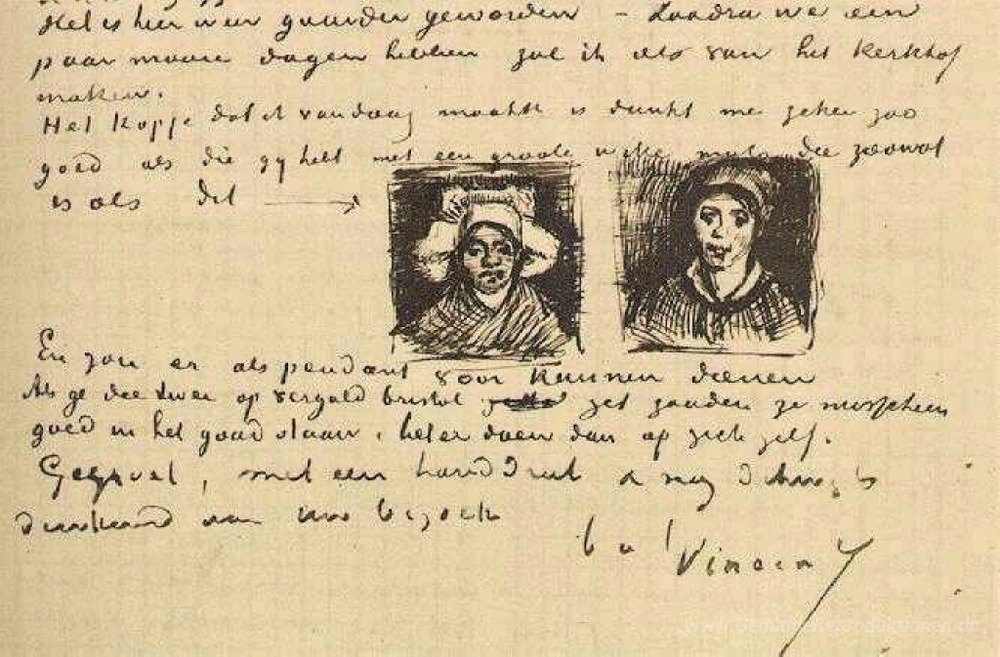 Het is hier weer guurder geworden – Zoodra we een
paar mooie dagen hebben zal ik iets van het kerkhof
maken.
Het kopje dat ik vandaag maakte is dunkt me zeker zoo
goed als die gy hebt met een groote witte muts die zoowat
is als dit
En zou er als pendant voor kunnen dienen
Als ge die twee op verguld bristol zet zouden ze misschien
goed in het goud staan, beter doen dan op zich zelf.
Gegroet, met een handdruk &
dankend voor Uw bezoek
t. à t. Vincent